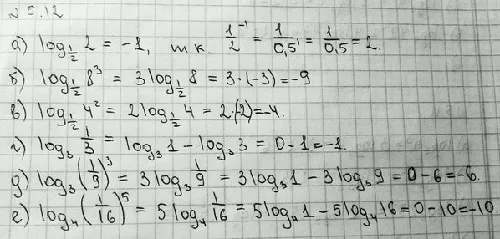 № 5.12
а) log_{1/2} 2 = -1, т.к. 1/2^{-1} = 1/0,5^1 = 1/0,5 = 2.
б) log_{1/2} 8^3 = 3 log_{1/2} 8 = 3·(-3) = -9
в) log_{1/2} 4^2 = 2 log_{1/2} 4 = 2·(-2) = -4.
г) log_3 1/3 = log_3 1 - log_3 3 = 0 - 1 = -1.
д) log_3 (1/9)^3 = 3 log_3 1/9 = 3 log_3 1 - 3 log_3 9 = 0 - 6 = -6.
е) log_4 (1/16)^5 = 5 log_4 1/16 = 5 log_4 1 - 5 log_4 16 = 0 - 10 = -10